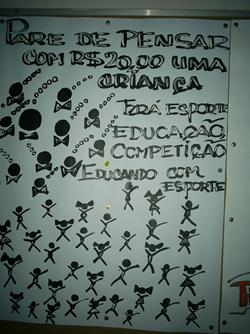 PARE DE PENSAR
COM R$20,00 UMA
CRIANÇA
TERÁ ESPORTE
EDUCAÇÃO,
COMPETIÇÃO
EDUCANDO COM
ESPORTE